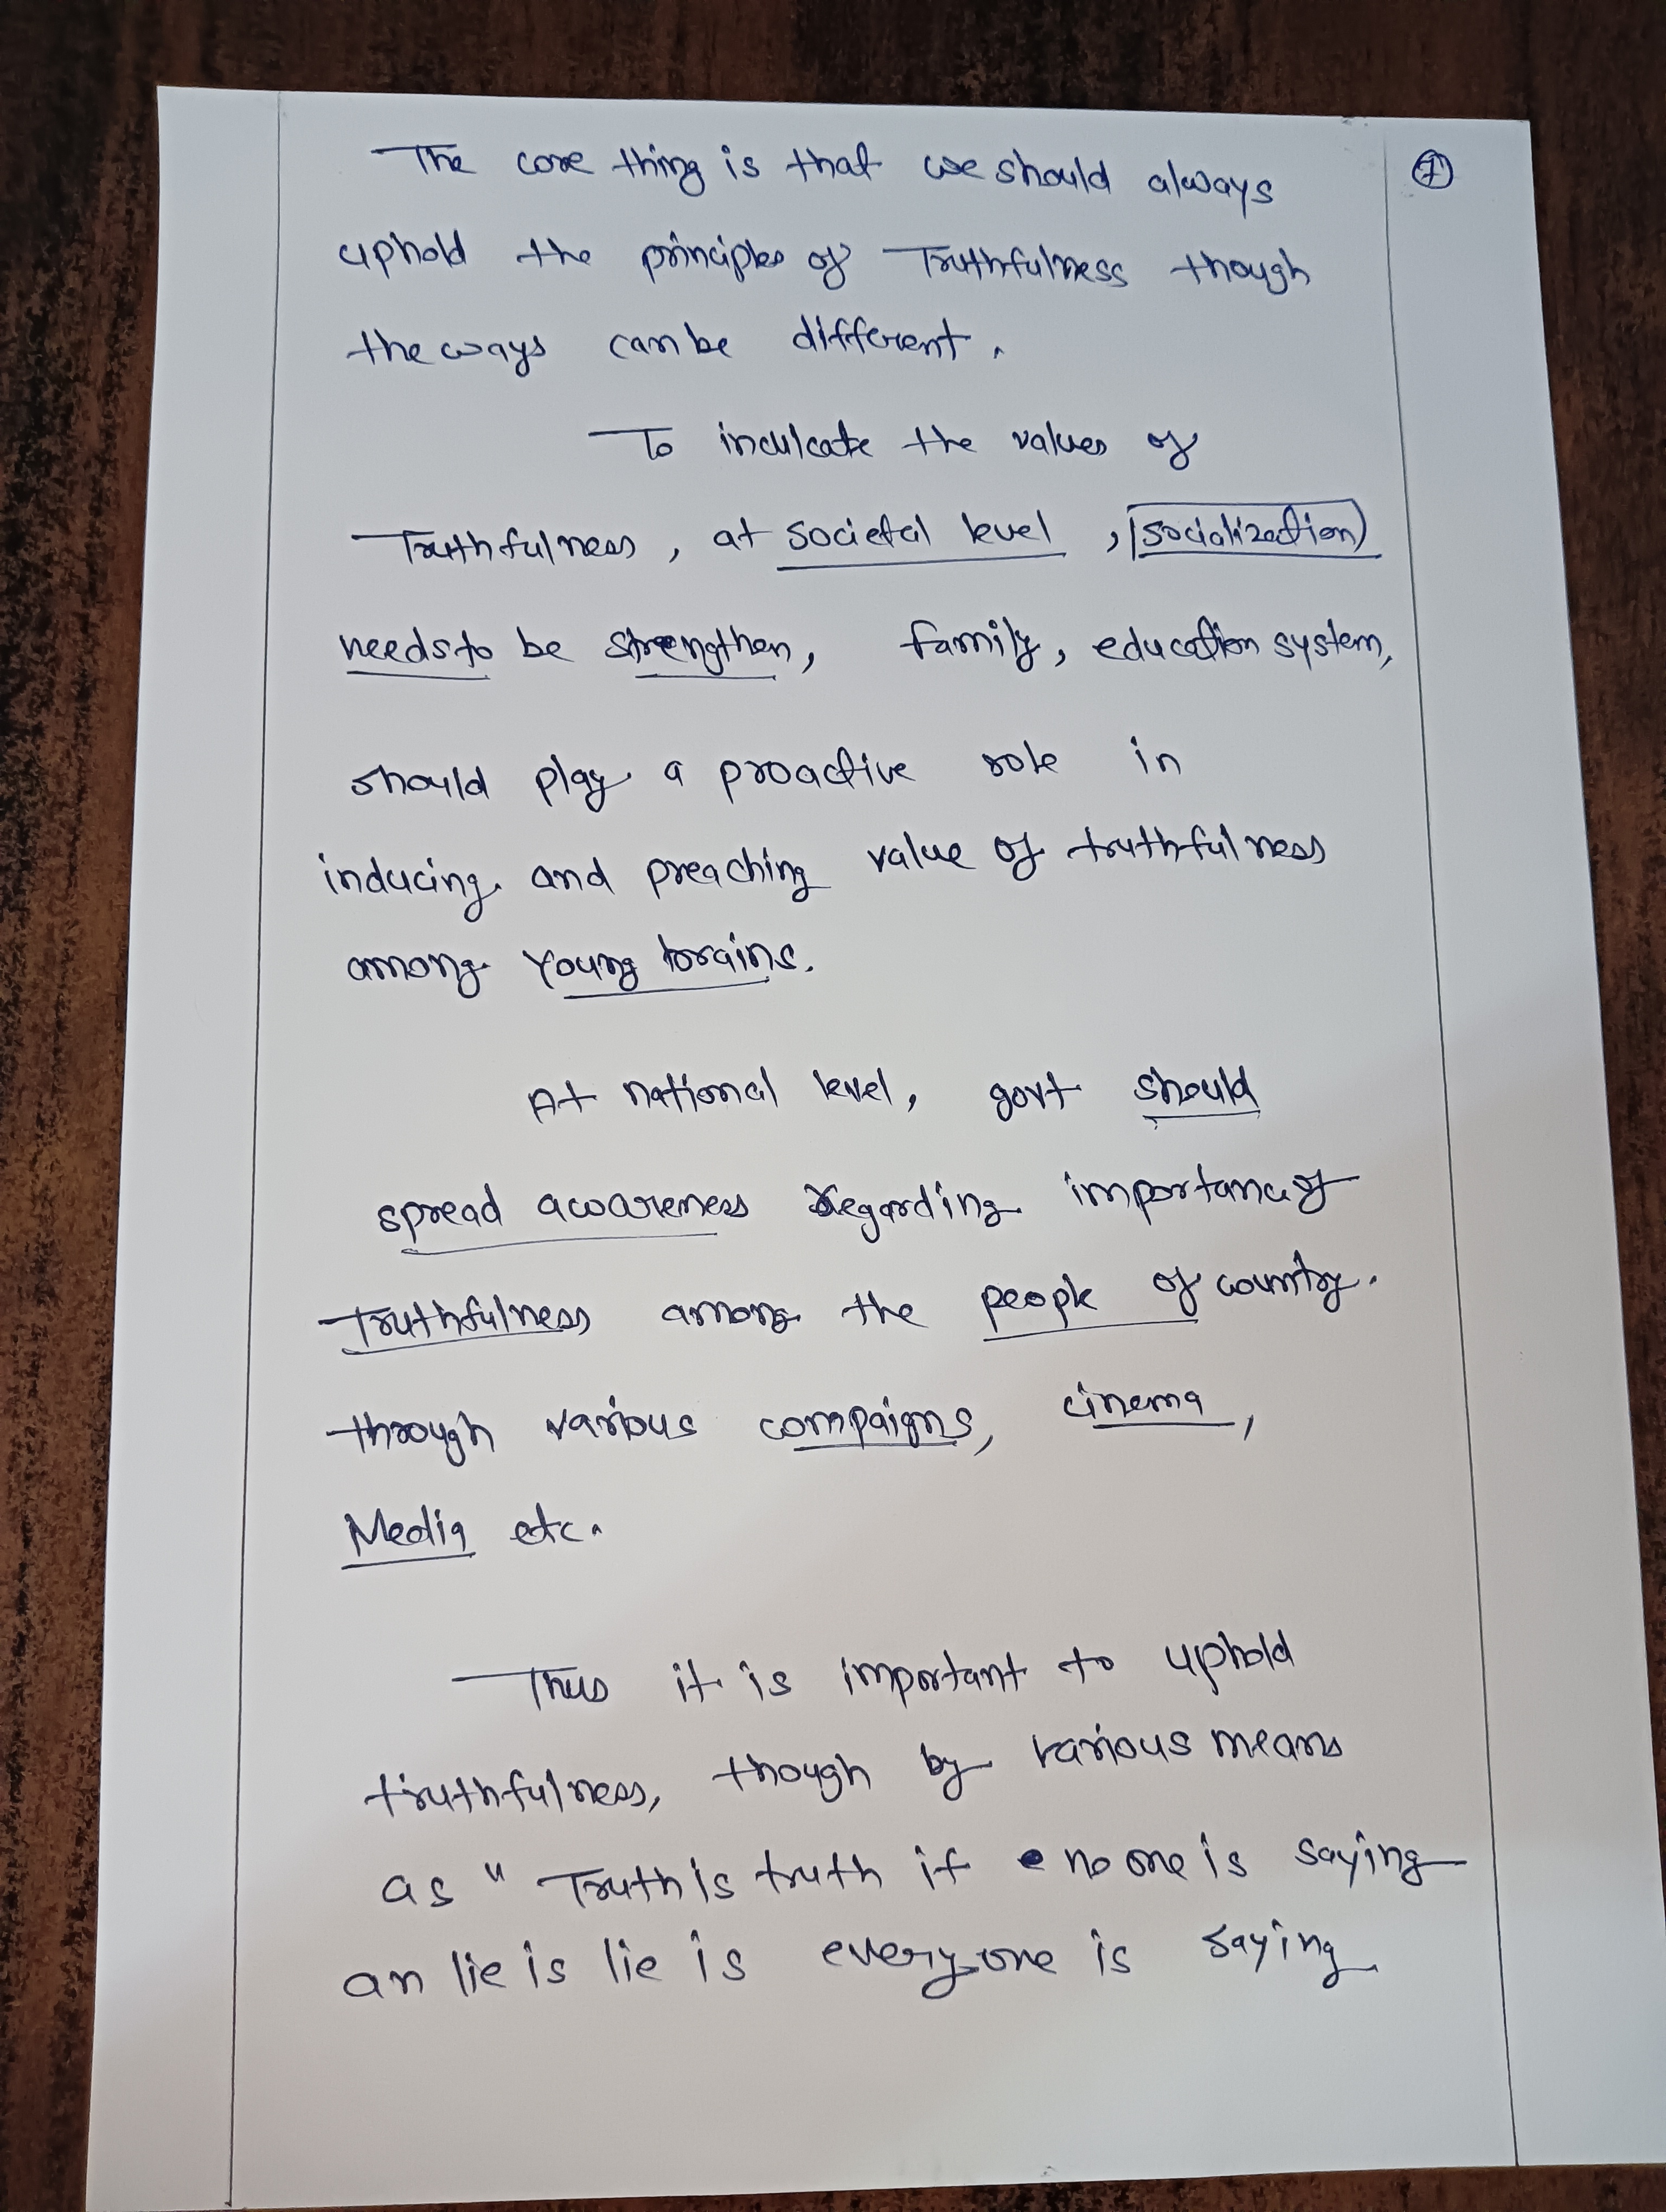 The core thing is that we should always
7
uphold the principles of Truthfulness though
the ways can be different.
To inculcate the values of
Truthfulness, at societal level, socialization
needs to be strengthen, family, education system,
should play a proactive role in
inducing and preaching value of truthfulness
among Young brains.
At national level, govt should
spread awareness regarding importance of
Truthfulness among the people of country.
through various compaigns, cinema,
Media etc.
Thus it is important to uphold
truthfulness, though by various means
as " Truth is truth if no one is saying
an lie is lie is everyone is saying